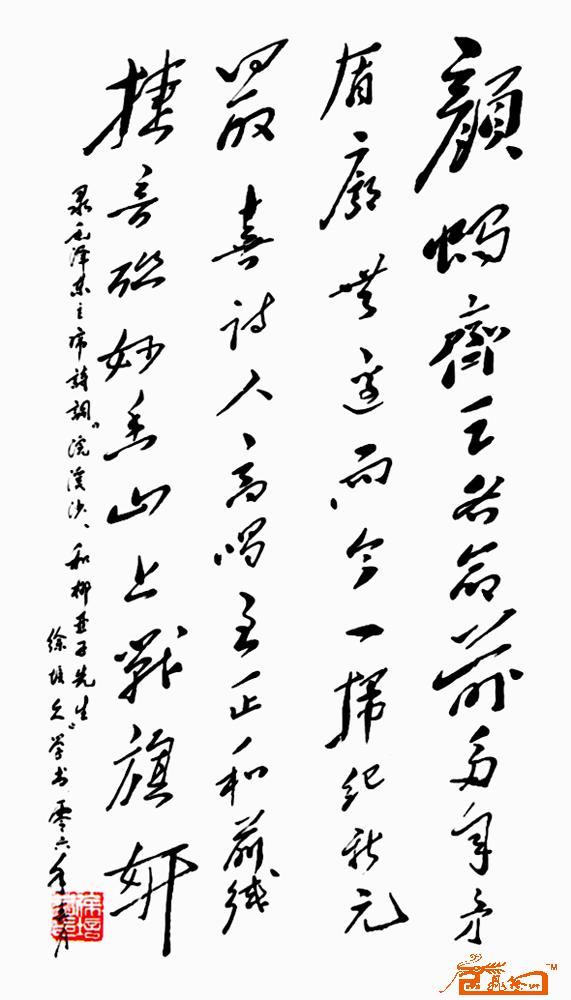 顏斶齊王各命前多年矛
盾廓無邊而今一掃纪新元
最喜诗人高唱至正和前线
捷音联妙香山上戰旗妍
录毛泽东主席詩詞“浣溪沙、和柳亚子先生”
徐培久学书零六年春月